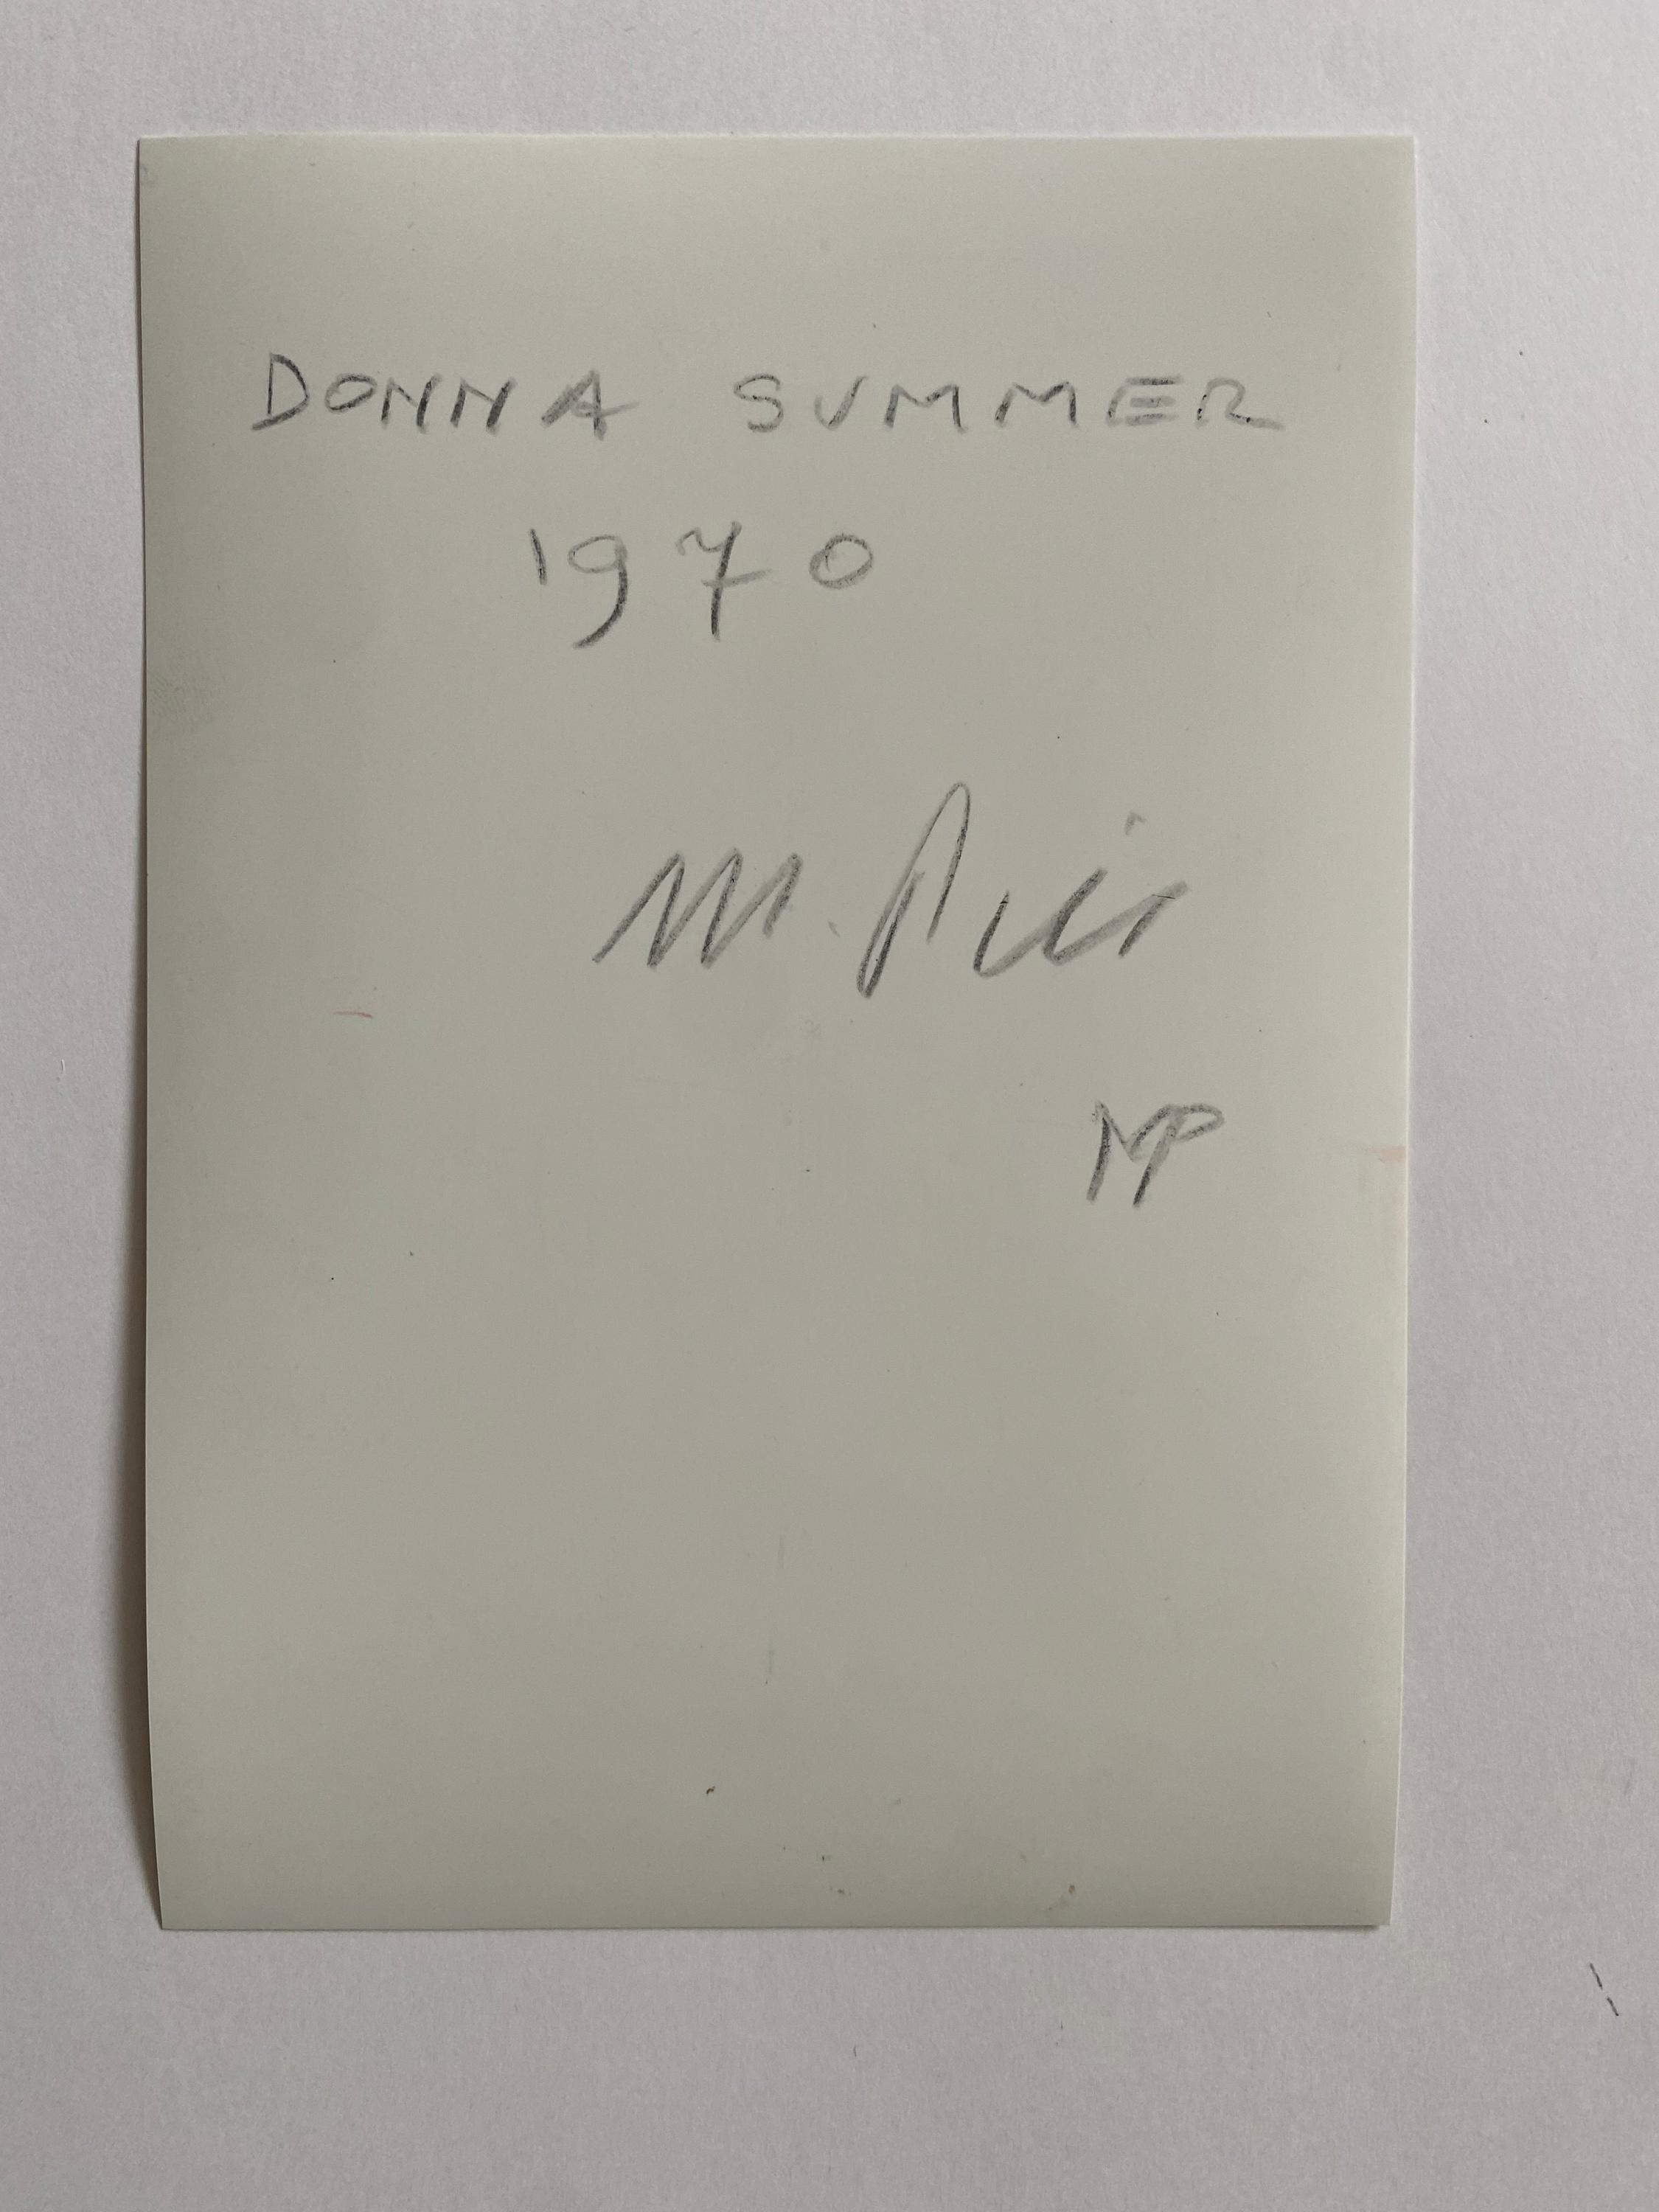 DONNA SUMMER
1970
M.
MP